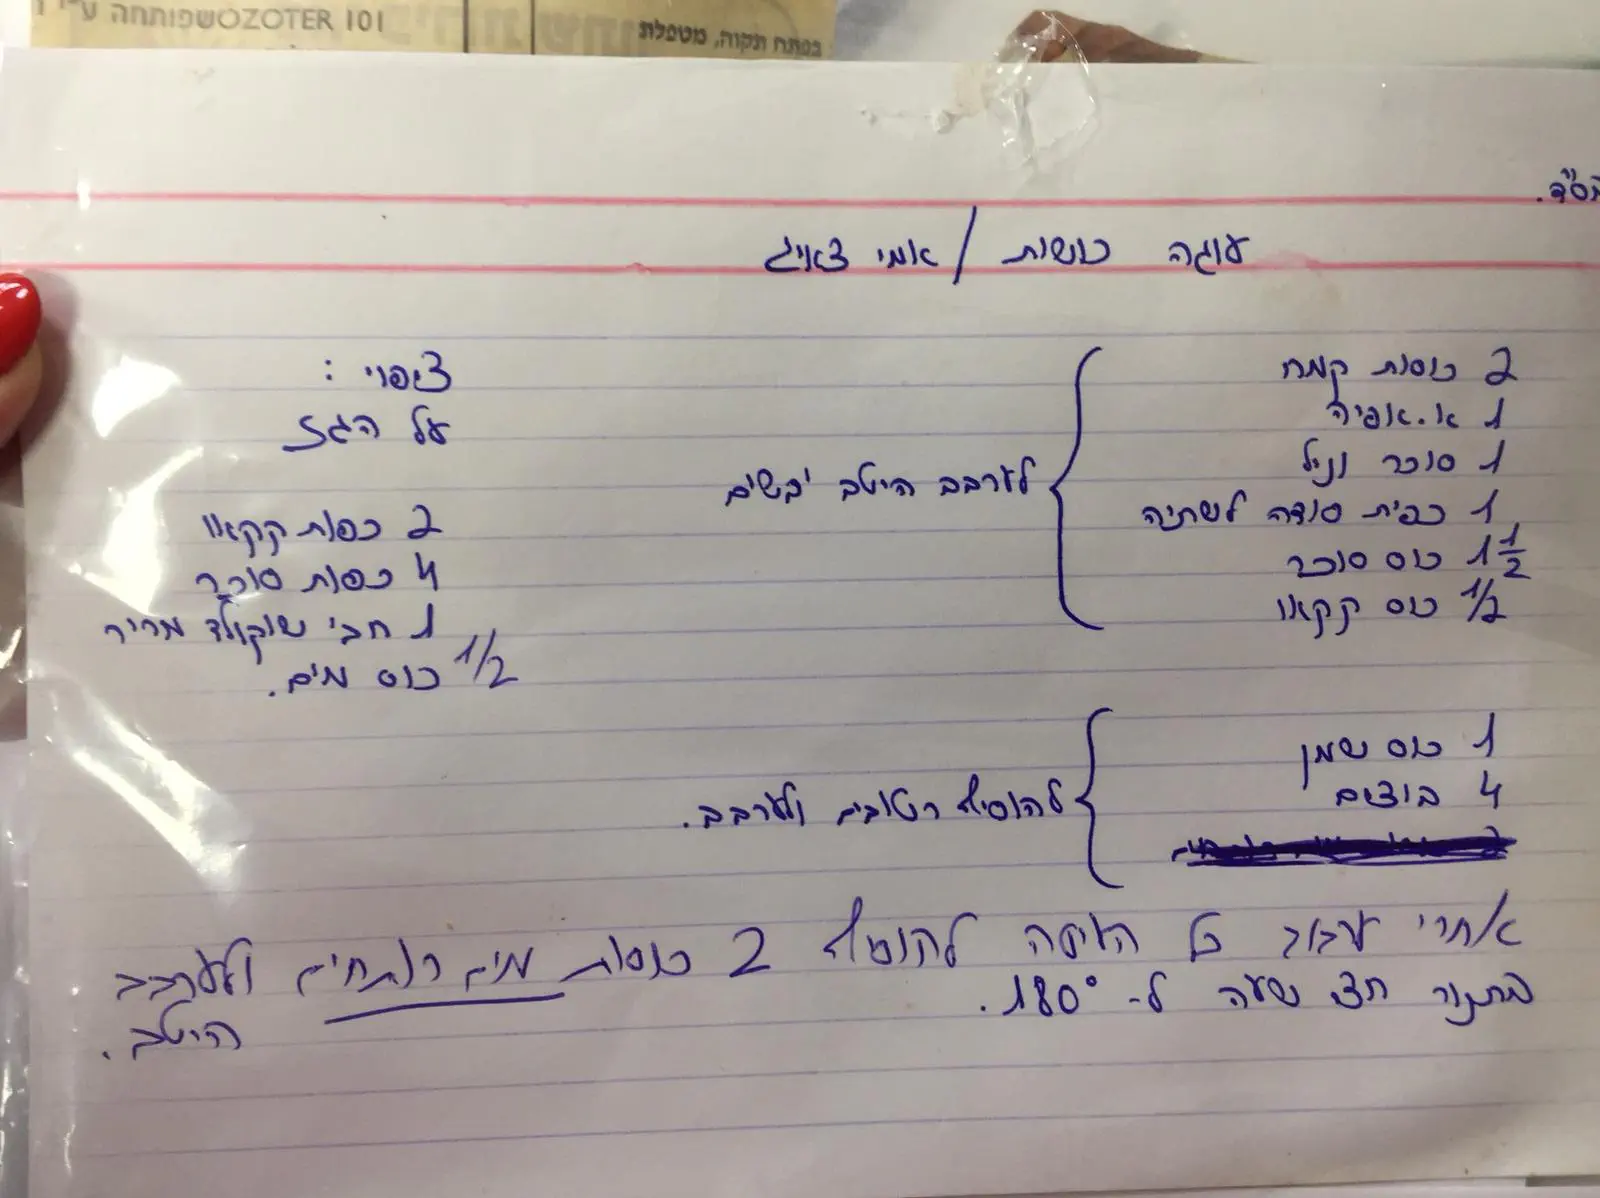 בס"ד.
עוגה כושית / אמי צאיג
2 כוסות קמח
1 א.אפיה
1 סוכר וניל
1 כפית סודה לשתיה
1 1/2 כוס סוכר
1/2 כוס קקאו
לערבב היטב יבשים
1 כוס שמן
4 ביצים
להוסיף רטובים ולערבב.
ציפוי :
על הגז
2 כפות קקאו
4 כפות סוכר
1 חבי' שוקולד מריר
1/2 כוס מים.
אחרי ערבוב כל העיסה להוסיף 2 כוסות מים רותחים ולערבב
היטב.
בתנור חצי שעה ל- 180°.
בפתח תקווה, מטפלת
OZOTER 101שפותחה ע"י